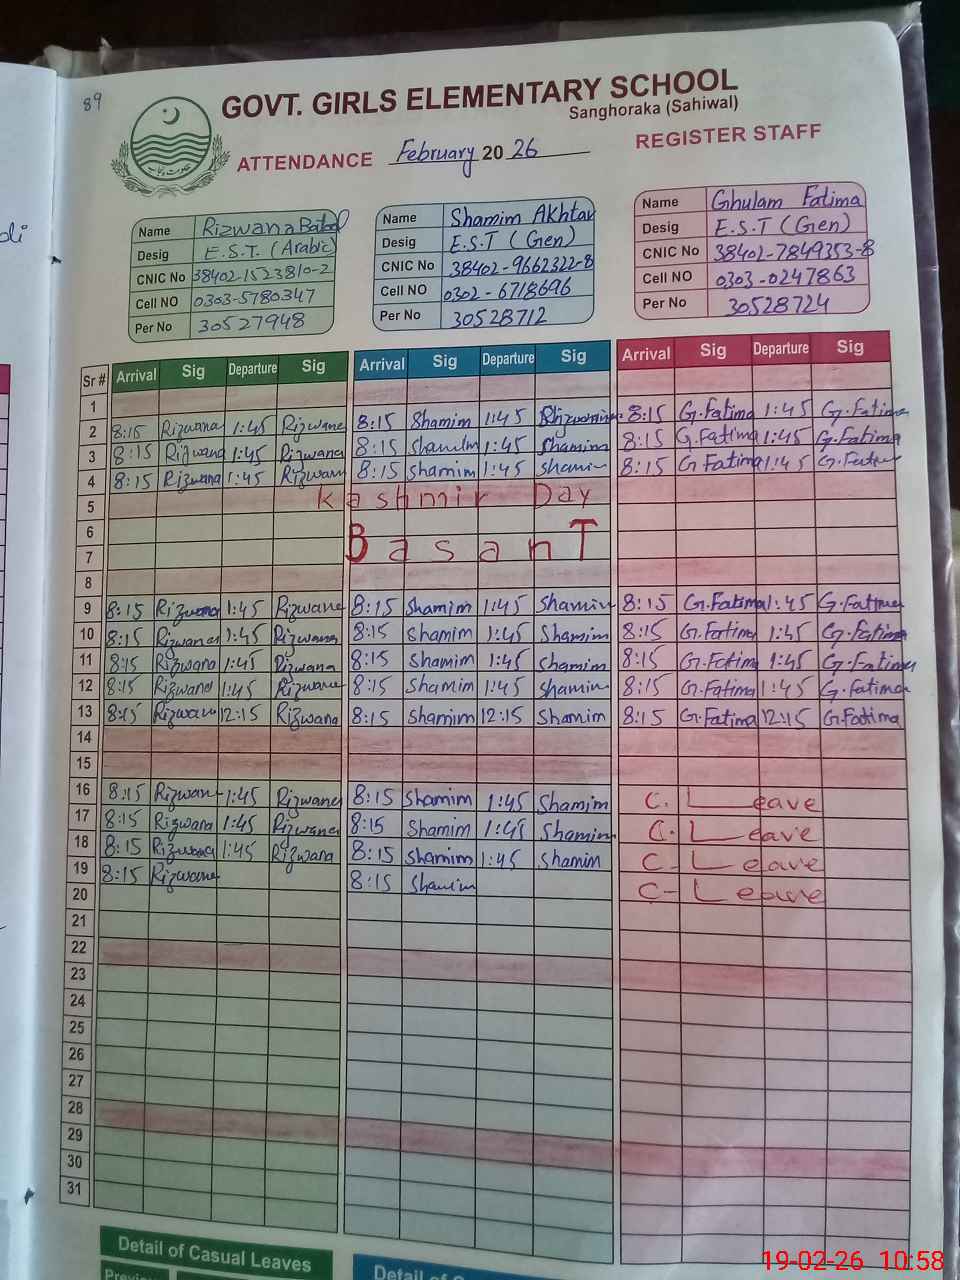 89
GOVT. GIRLS ELEMENTARY SCHOOL
Sanghoraka (Sahiwal)
ATTENDANCE February 20 26 REGISTER STAFF
Name Rizwana Batool
Desig E.S.T. (Arabic)
CNIC No 38402-1523810-2
Cell NO 0303-5780347
Per No 30527948
Name Shamim Akhtar
Desig E.S.T (Gen)
CNIC No 38402-9662322-8
Cell NO 0302-6718696
Per No 30528712
Name Ghulam Fatima
Desig E.S.T (Gen)
CNIC No 38402-7849353-8
Cell NO 0303-0247863
Per No 30528724
Sr # Arrival Sig Departure Sig Arrival Sig Departure Sig Arrival Sig Departure Sig
1
2 8:15 Rizwana 1:45 Rizwana 8:15 Shamim 1:45 8:15 G.Fatima 1:45 G.Fatima
3 8:15 Rizwana 1:45 Rizwana 8:15 Shamim 1:45 Shamim 8:15 G.Fatima 1:45 G.Fatima
4 8:15 Rizwana 1:45 Rizwana 8:15 Shamim 1:45 Shamim 8:15 G Fatima 1:45 G.Fatima
5 Kashmir Day
6
7 BasanT
8
9 8:15 Rizwana 1:45 Rizwana 8:15 Shamim 1:45 Shamim 8:15 G.Fatima 1:45 G.Fatima
10 8:15 Rizwana 1:45 Rizwana 8:15 Shamim 1:45 Shamim 8:15 G.Fatima 1:45 G.Fatima
11 8:15 Rizwana 1:45 Rizwana 8:15 Shamim 1:45 Shamim 8:15 G.Fatima 1:45 G.Fatima
12 8:15 Rizwana 1:45 Rizwana 8:15 Shamim 1:45 Shamim 8:15 G.Fatima 1:45 G.Fatima
13 8:15 Rizwana 12:15 Rizwana 8:15 Shamim 12:15 Shamim 8:15 G.Fatima 12:15 G.Fatima
14
15
16 8:15 Rizwana 1:45 Rizwana 8:15 Shamim 1:45 Shamim C. Leave
17 8:15 Rizwana 1:45 Rizwana 8:15 Shamim 1:45 Shamim C. Leave
18 8:15 Rizwana 1:45 Rizwana 8:15 Shamim 1:45 Shamim C- Leave
19 8:15 Rizwana 8:15 Shamim C- Leave
20
21
22
23
24
25
26
27
28
29
30
31
Detail of Casual Leaves
Detail of
19-02-26 10:58